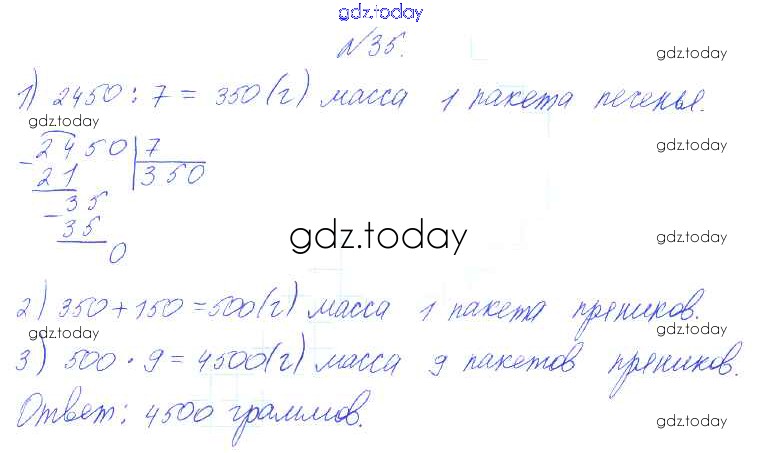 gdz.today
№35.
gdz.today
1) 2450 : 7 = 350 (г) масса 1 пакета печенья.
gdz.today
- 2450 | 7
gdz.today
21 | 350
- 35
35
gdz.today
gdz.today
0
2) 350 + 150 = 500 (г) масса 1 пакета пряников.
gdz.today
gdz.today
3) 500 · 9 = 4500 (г) масса 9 пакетов пряников.
Ответ: 4500 граммов.
gdz.today